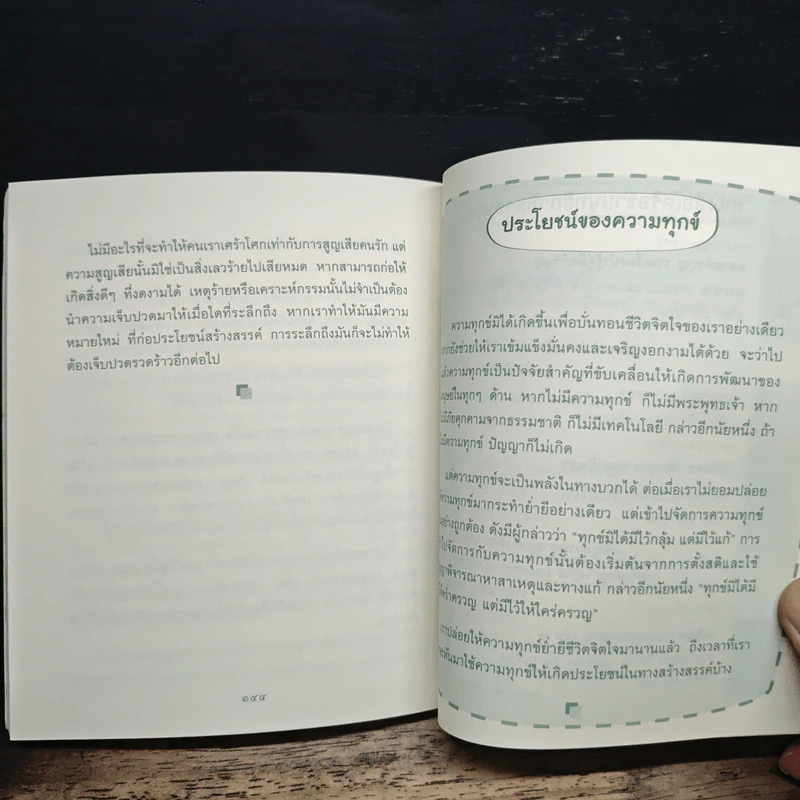 ไม่มีอะไรที่จะทำให้คนเราเศร้าโศกเท่ากับการสูญเสียคนรัก แต่
ความสูญเสียนั้นมิใช่เป็นสิ่งเลวร้ายไปเสียหมด หากสามารถก่อให้
เกิดสิ่งดีๆ ที่งดงามได้ เหตุร้ายหรือเคราะห์กรรมนั้นไม่จำเป็นต้อง
นำความเจ็บปวดมาให้เมื่อใดที่ระลึกถึง หากเราทำให้มันมีความ
หมายใหม่ ที่ก่อประโยชน์สร้างสรรค์ การระลึกถึงมันก็จะไม่ทำให้
ต้องเจ็บปวดรวดร้าวอีกต่อไป
๑๔๔
ประโยชน์ของความทุกข์
ความทุกข์มิได้เกิดขึ้นเพื่อบั่นทอนชีวิตจิตใจของเราอย่างเดียว
ากยังช่วยให้เราเข้มแข็งมั่นคงและเจริญงอกงามได้ด้วย จะว่าไป
แล้วความทุกข์เป็นปัจจัยสำคัญที่ขับเคลื่อนให้เกิดการพัฒนาของ
นุษย์ในทุกๆ ด้าน หากไม่มีความทุกข์ ก็ไม่มีพระพุทธเจ้า หาก
ม่มีภัยคุกคามจากธรรมชาติ ก็ไม่มีเทคโนโลยี กล่าวอีกนัยหนึ่ง ถ้า
ม่มีความทุกข์ ปัญญาก็ไม่เกิด
แต่ความทุกข์จะเป็นพลังในทางบวกได้ ต่อเมื่อเราไม่ยอมปล่อย
ห้ความทุกข์มากระทำย่ำยีอย่างเดียว แต่เข้าไปจัดการความทุกข์
อย่างถูกต้อง ดังมีผู้กล่าวว่า "ทุกข์มิได้มีไว้กลุ้ม แต่มีไว้แก้" การ
ไปจัดการกับความทุกข์นั้นต้องเริ่มต้นจากการตั้งสติและใช้
ญาพิจารณาหาสาเหตุและทางแก้ กล่าวอีกนัยหนึ่ง "ทุกข์มิได้มี
คร่ำครวญ แต่มีไว้ให้ใคร่ครวญ"
ราปล่อยให้ความทุกข์ย่ำยีชีวิตจิตใจมานานแล้ว ถึงเวลาที่เรา
ะหันมาใช้ความทุกข์ให้เกิดประโยชน์ในทางสร้างสรรค์บ้าง